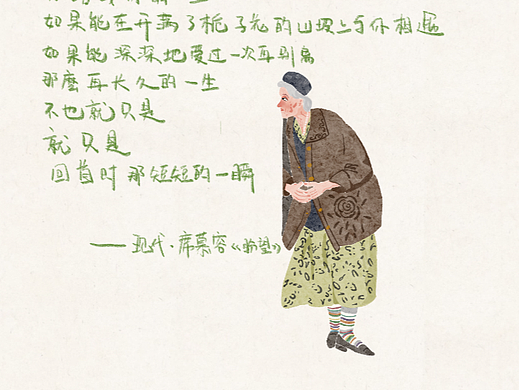 如果能在开满了栀子花的山坡上与你相遇
如果能深深地爱过一次再别离
那麽再长久的一生
不也就只是
就只是
回首时那短短的一瞬
——现代·席慕容《盼望》